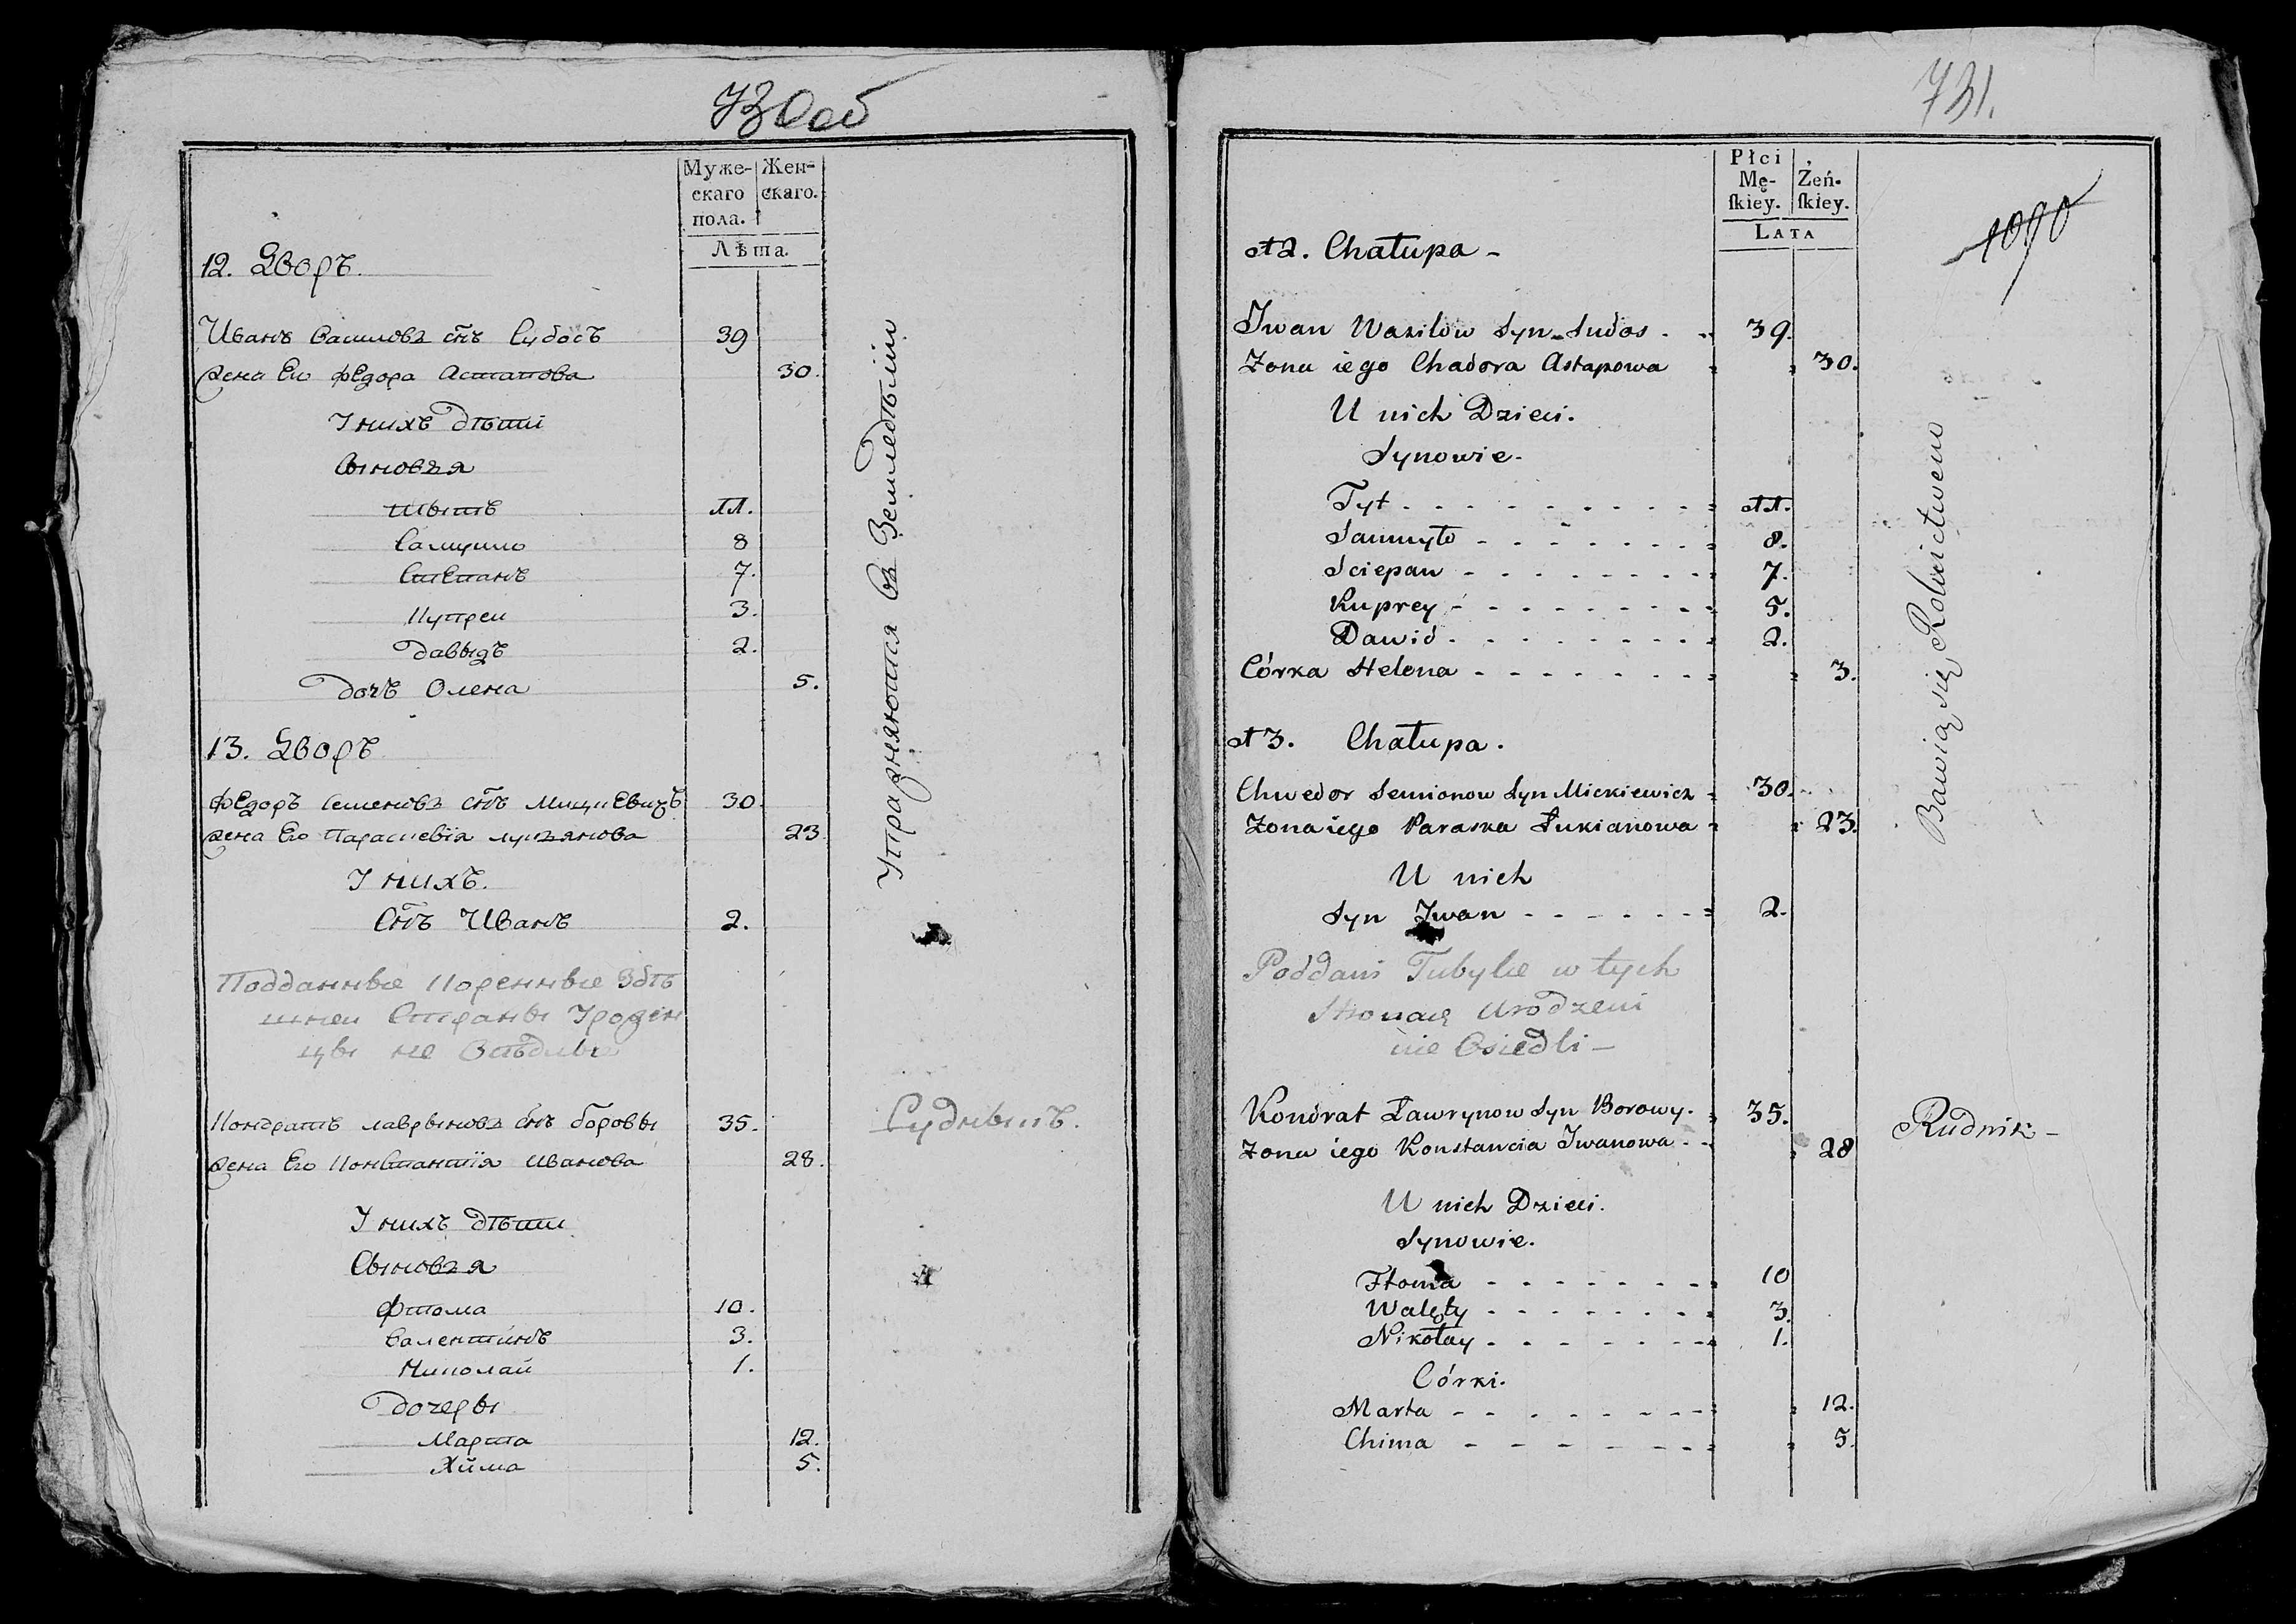 730об
Муже- Жен-
скаго скаго.
пола.
Лѣта.
12. Дворъ.
Иванъ Василовъ снъ Судосъ 39
жена Его Федора Астапова 30.
У нихъ дѣти
Сыновья
Тытъ 11.
Самуило 8
Степанъ 7.
Купреи 3.
Давыдъ 2.
Дочь Олена 5.
13. Дворъ
Федоръ Семеновъ снъ Мицкевичъ 30.
жена Его Параскевія лукьянова 23
У нихъ.
Снъ Иванъ 2.
Подданные Коренные Здѣ
шнеи Страны Урожен
цы не Осѣдлые
Кондратъ лаврыновъ снъ боровы 35.
жена Его Констанція Иванова 28.
У нихъ дѣти
Сыновья
Фтома 10.
Валентинъ 3.
Николай 1.
Дочеры
Марта 12.
Хима 5.
Упражняются въ Земледѣліи
Рудныкъ.
731.
1090
Płci
Mę- Żeń-
ſkiey. ſkiey.
LATA
12. Chałupa -
Jwan Wasilow Syn Sudos - 39.
Zona iego Chadora Astapowa 30.
U nich Dzieci.
Synowie.
Tyt 11.
Samuyło 8.
Sciepan 7.
Kuprey 5.
Dawid 2.
Córka Helena 3.
13. Chałupa.
Chwedor Semionow Syn Mickiewicz 30.
Zona iego Paraska Łukianowa 23.
U nich
Syn Jwan 2.
Poddani Tubylce w tych
Stronach Urodzeni
nie Osiedli -
Kondrat Ławrynow Syn Borowy. 35.
Zona iego Konstancia Jwanowa 28
U nich Dzieci.
Synowie.
Ftoma 10
Walęty 3.
Nikołay 1.
Córki.
Marta 12.
Chima 5.
Bawią się Rolnictwem
Rudnik -